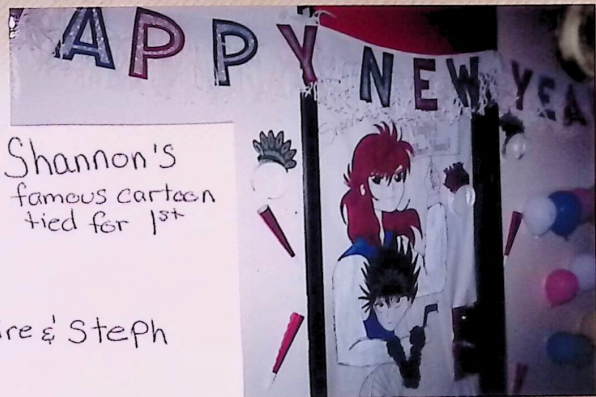 APPY NEW YEA
Shannon's
famous cartoon
tied for 1st
re & Steph